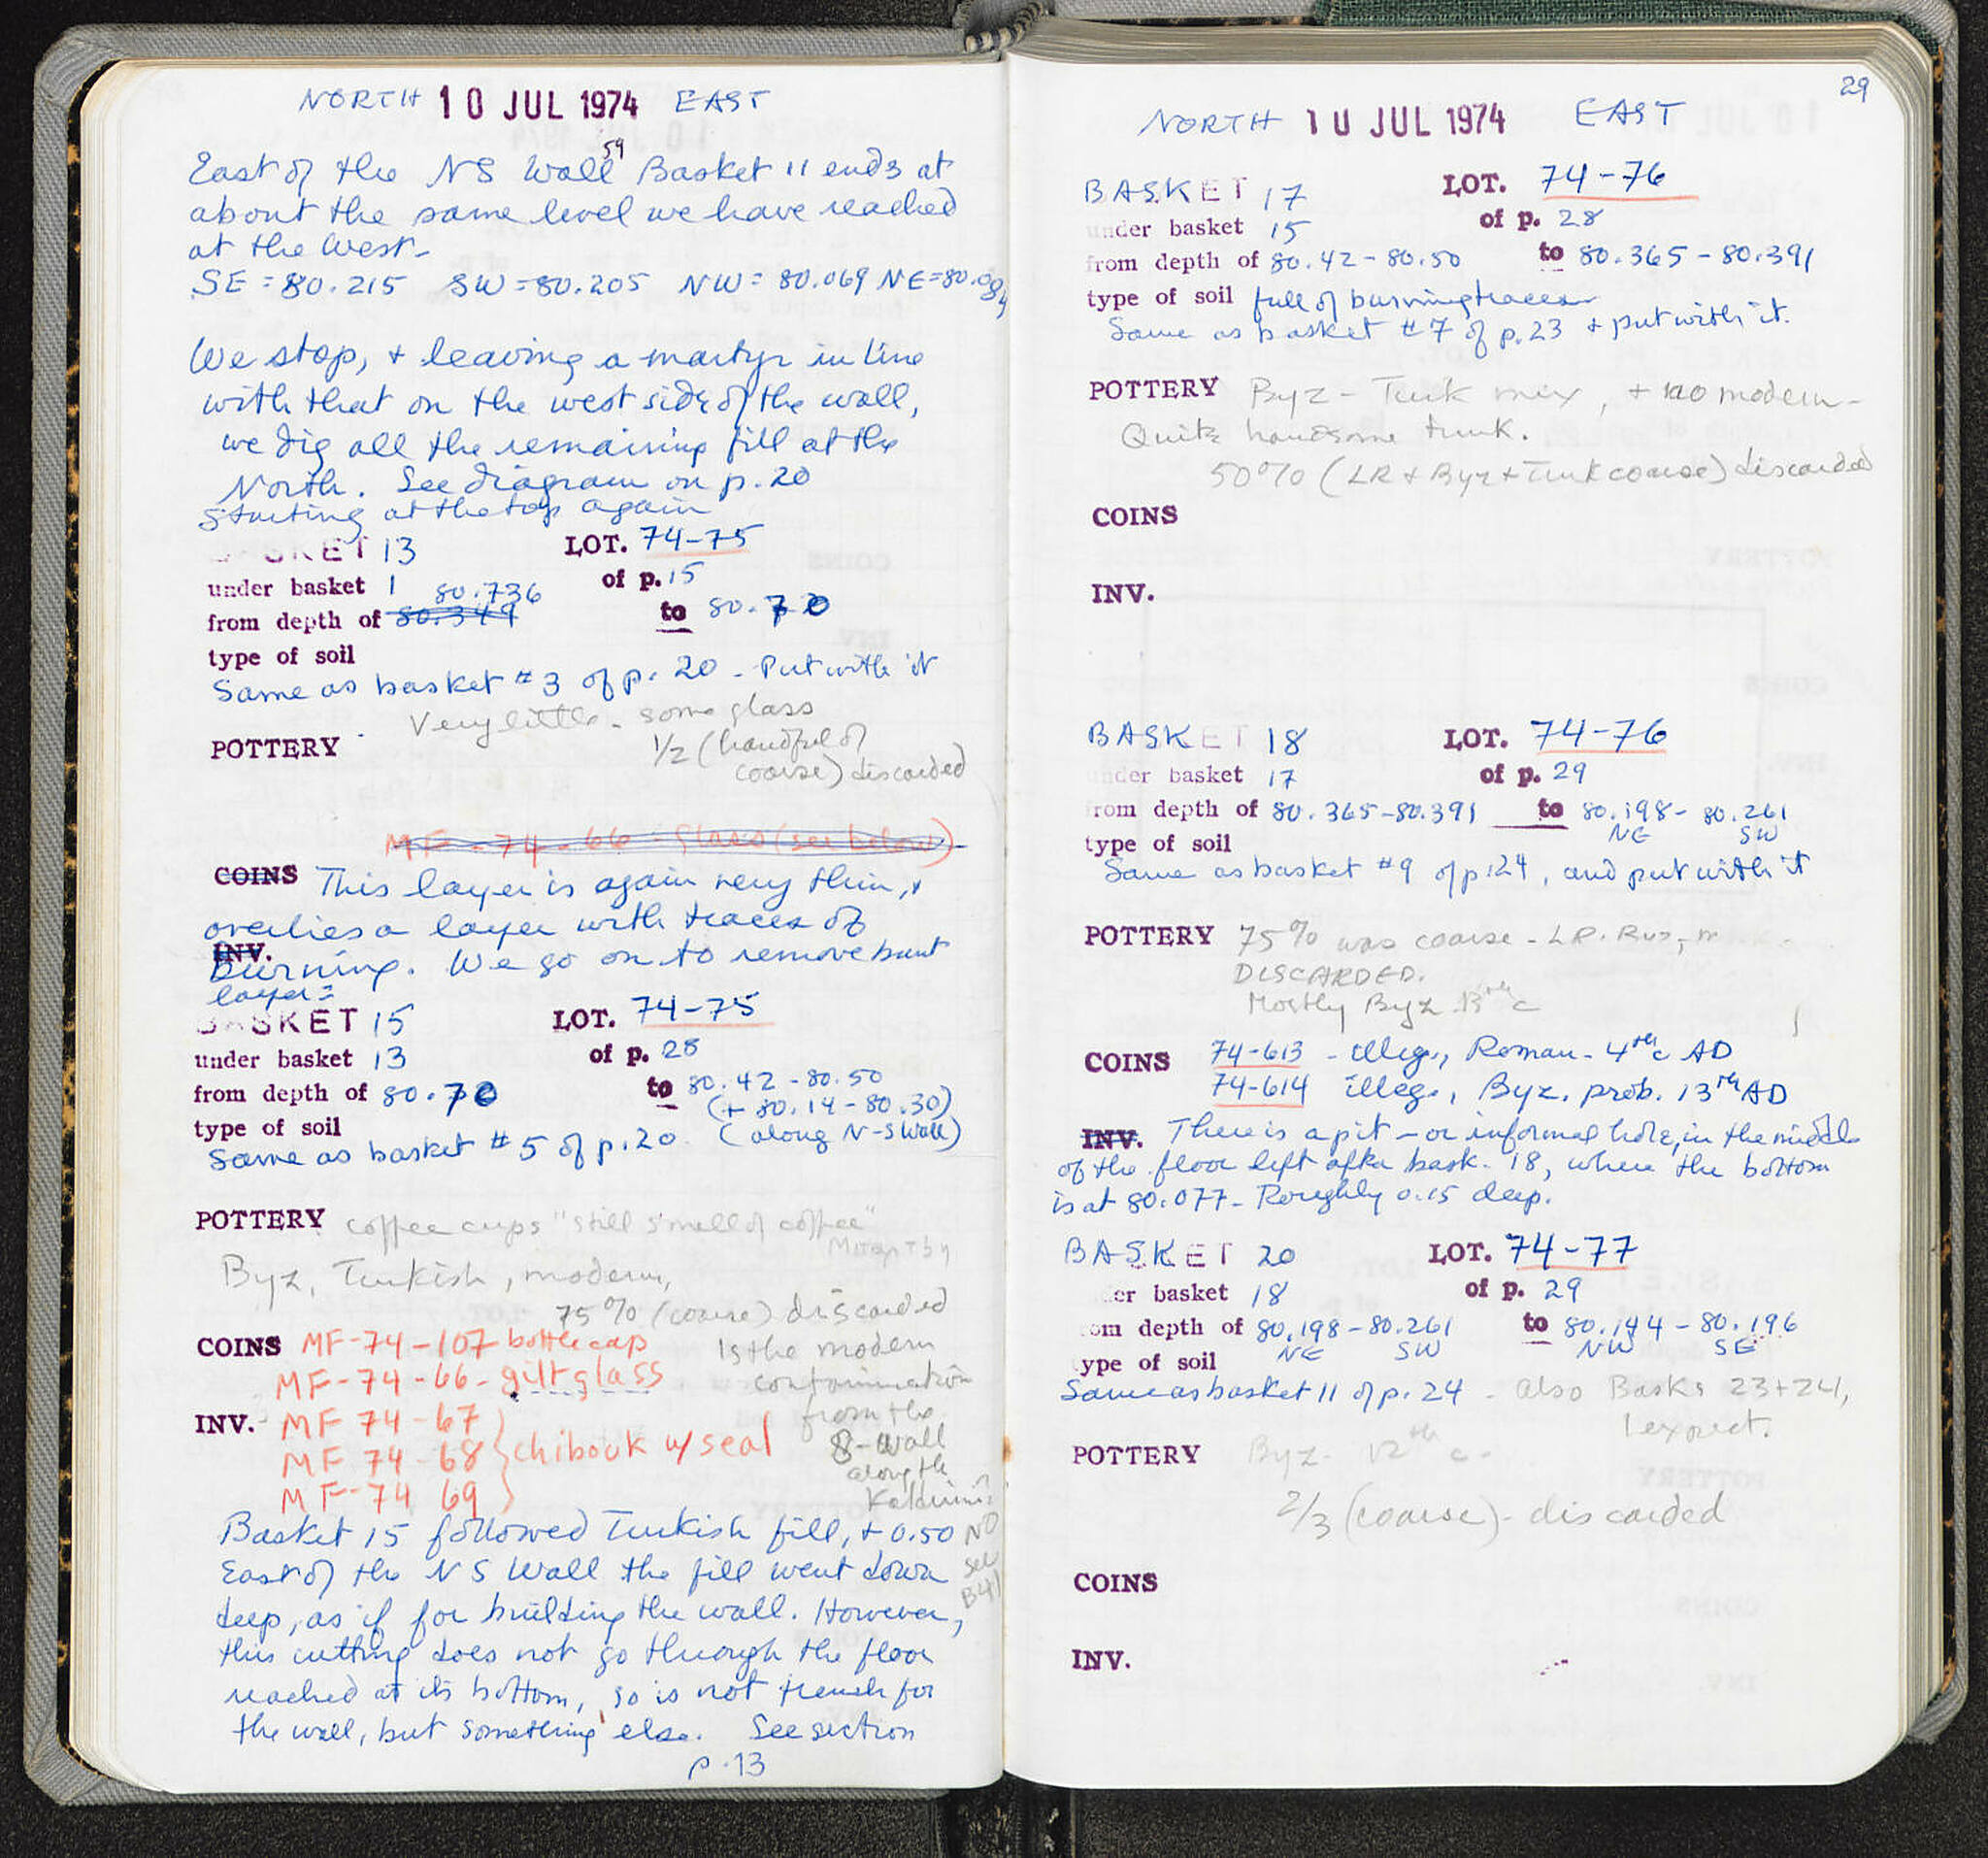 NORTH 10 JUL 1974 EAST
East of the NS Wall 59 Basket 11 ends at
about the same level we have reached
at the West-
SE = 80.215 SW = 80.205 NW = 80.069 NE = 80.084
We stop, + leaving a martyr in line
with that on the west side of the wall,
we dig all the remaining fill at the
North. See diagram on p. 20
Starting at the top again
BASKET 13 LOT. 74-75
under basket 1 of p. 15
80.736
from depth of 80.349 to 80.70
type of soil
Same as basket #3 of p. 20 - Put with it
Very little - some glass
POTTERY 1/2 (handful of
coarse) discarded
MF-74-66 Glass (see below)
COINS This layer is again very thin, +
overlies a layer with traces of
INV.
burning. We go on to remove burnt
layer:
BASKET 15 LOT. 74-75
under basket 13 of p. 28
from depth of 80.70 to 80.42 - 80.50
(+ 80.14 - 80.30)
type of soil (along N-S Wall)
Same as basket #5 of p. 20
POTTERY coffee cups "still smell of coffee"
Byz, Turkish, modern,
75% (coarse) discarded
COINS MF-74-107 bottle cap
MF-74-66 - gilt glass
INV. MF 74-67
MF 74-68 } chibouk w/ seal
MF-74 69
Is the modern
contamination
from the
8-Wall
along the
NO
see
B41
Basket 15 followed Turkish fill, + 0.50
East of the NS Wall the fill went down
deep, as if for building the wall. However,
this cutting does not go through the floor
reached at its bottom, so is not trench for
the wall, but something else. See section
p. 13
29
NORTH 10 JUL 1974 EAST
BASKET 17 LOT. 74-76
under basket 15 of p. 28
from depth of 80.42 - 80.50 to 80.365 - 80.391
type of soil full of burning traces
Same as basket #7 of p. 23 + put with it.
POTTERY Byz - Turk mix, + no modern -
Quite handsome Turk.
50% (LR + Byz + Turk coarse) discarded
COINS
INV.
BASKET 18 LOT. 74-76
under basket 17 of p. 29
from depth of 80.365-80.391 to 80.198 - 80.261
NE SW
type of soil
Same as basket #9 of p. 24, and put with it
POTTERY 75% was coarse - LR.
DISCARDED.
Mostly Byz 13th c
COINS 74-613 - illeg., Roman - 4th c AD
74-614 illeg., Byz. prob. 13th AD
INV. There is a pit - or informal hole, in the middle
of the floor left after bask. 18, where the bottom
is at 80.077 - Roughly 0.15 deep.
BASKET 20 LOT. 74-77
der basket 18 of p. 29
om depth of 80.198 - 80.261 to 80.144 - 80.196
NE SW NW SE
ype of soil
Same as basket 11 of p. 24 - also Basks 23+24,
I expect.
POTTERY Byz - 12th c.
2/3 (coarse) - discarded
COINS
INV.